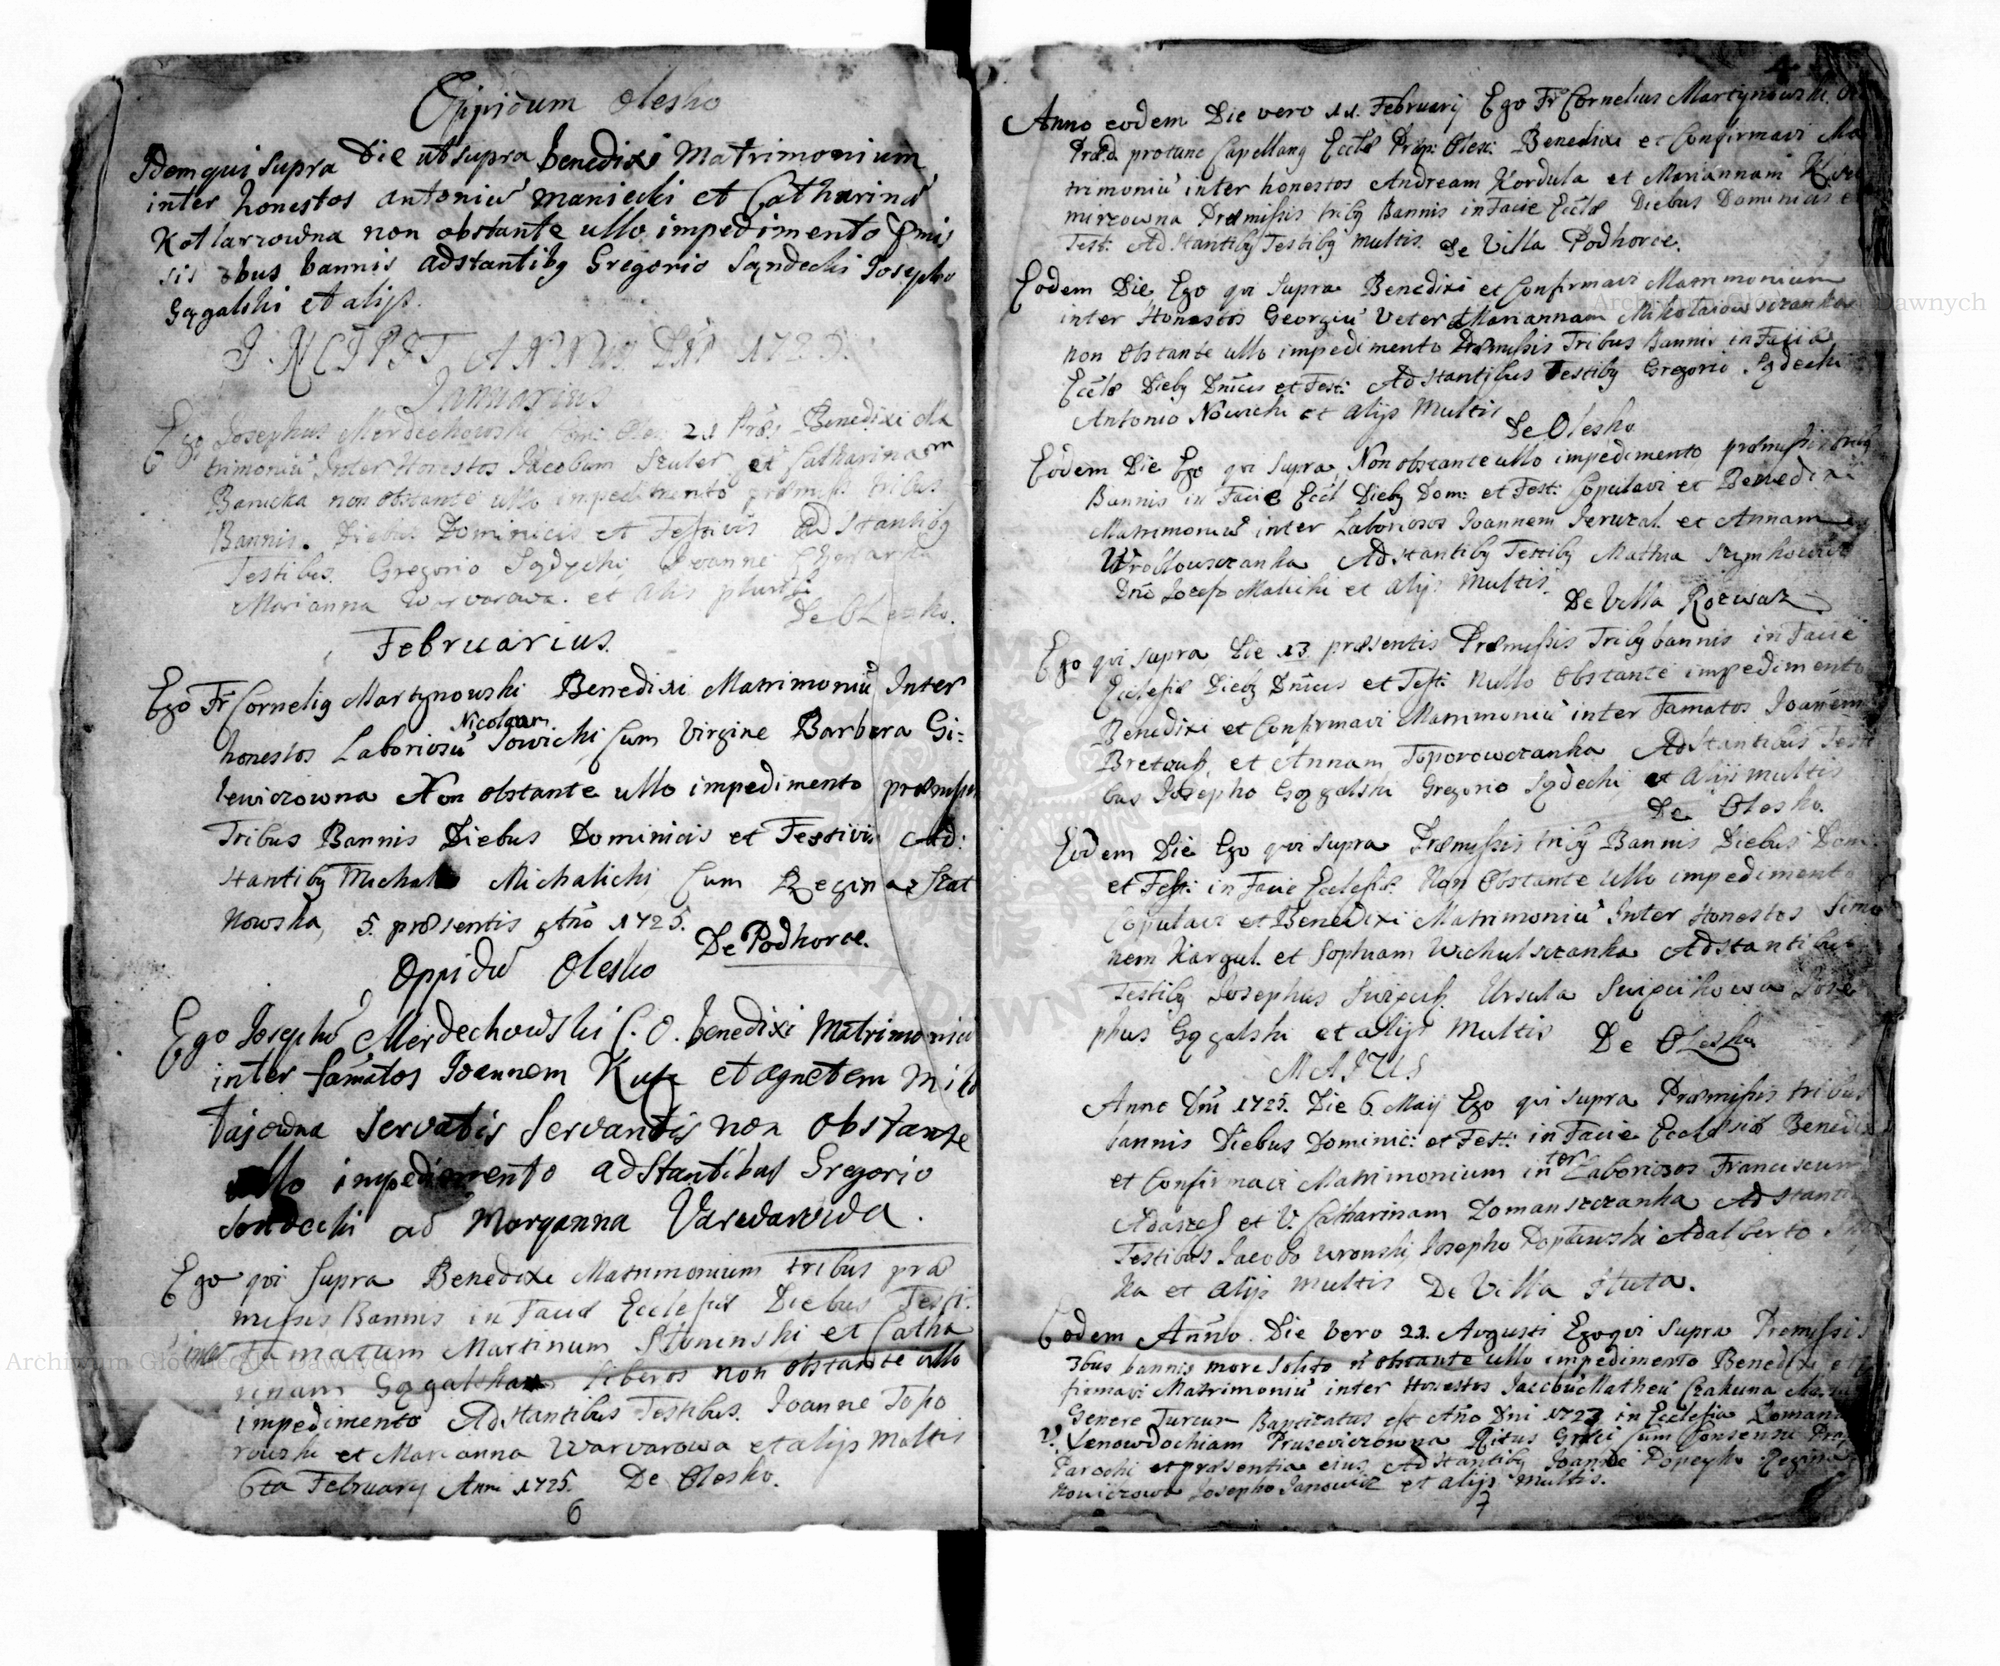 Oppidum Olesko
Idem qui supra Die ut supra benedixi Matrimonium
inter honestos antoniū maniecki et Catharinā
Kotlarzowna non obstante ullo impedimento pmis
sis 3bus bannis adstantibq Gregorio Sądecki Josepho
Gągalski et alijs.
INCIPIT ANNUS DNI 1725.
Januarius
Ego Josephus Merdechowski 21 Benedixi Ma
trimoniū Inter Honestos Jacobum Szuler et Catharinam
Banicka non obstante ullo impedimento præmiss. tribus
Bannis. Diebus Dominicis et Festivis Adstantibq
Testibus. Gregorio Sądycki, Joanne
Marianna Warvarowa. et alis
De Olesko.
Februarius.
Ego Fr Cornelig Martynowski Benedixi Matrimoniū Inter
Nicolaum
honestos Laboriosū Sowicki Cum Virgine Barbara Gi:
lewiczowna Non obstante ullo impedimento præmissis
Tribus Bannis Diebus Dominicis et Festivis Ad:
stantibq Michalicki Cum Regina
nowska, 5. præsentis Año 1725.
De Podhorce.
Oppidū Olesko
Ego Josephū Merdechowski C. O. benedixi Matrimoniū
inter famatos Joannem et Agnetem Miko
łajowna Servatis Servandis non obstante
ullo impedimento adstantibus Gregorio
Sondecki ad Maryanna Varwarwida.
Ego qvi supra Benedixi Matrimonium tribus præ
missis Bannis in Facie Ecclesiæ Diebus Festi:
Famatum Martinum Słoninski et Catha
rinam Gągalska liberos non obstante ullo
impedimento Adstantibus Testibus. Joanne Topo
rowski et Marianna Warvarowa et alijs Multis
6ta February Anni 1725. De Olesko.
6
Anno eodem Die vero 11. Februarij Ego Fr Cornelius Martynowski
Præd. protunc Capellanq Eccłæ Præp: Olesc: Benedixi et Confirmavi Ma
trimoniū inter honestos Andream Kordula et Mariannam
mirzowna Præmissis tribq Bannis in Facie Eccłæ Diebus Dominicis et
Fest: Adstantibq Testibq multis. De Villa Podhorce.
Eodem Die Ego qvi Supra Benedixi et Confirmavi Matrimonium
inter Honestos Georgiū Veter et Mariannam Mikołaiowsczanka
non obstante ullo impedimento Præmissis Tribus Bannis in Facie
Eccłæ Diebq Dnicis et Fest: Adstantibus Testibq Gregorio Sądecki
Antonio Nowicki et alijs Multis
De Olesko
Eodem Die Ego qvi Supra Non obstante ullo impedimento præmissis tribq
Bannis in Facie Eccł Diebq Dom: et Fest: Copulavi et Benedixi
Matrimoniū inter Laboriosos Joannem Jeruzal. et Annam
Wrollowczanka Adstantibq Testibq Mathia Szymkowicz
Dno Josepho Malicki et alijs Multis.
De Villa Rozwaz
Ego qvi supra Die 13 præsentis Præmissis Tribq bannis in Facie
Ecclesiæ Diebq Dnicis et Fest: Nullo Obstante impedimento
Benedixi et Confirmavi Matrimoniū inter Famatos Joannem
et Annam Toporowczanka Adstantibus Testi
bus Josepho Gągalski Gregorio Sądecki et alijs multis
De Olesko.
Eodem Die Ego qvi supra Præmissis tribq Bannis Diebus Dom:
et Fest: in Facie Ecclesiæ Non Obstante Ullo impedimento
Copulavi et Benedixi Matrimoniū Inter Honestos Simo
nem Kargul. et Sophiam Wichulsczanka Adstantibus
Testibq Josephus Ursula Jose
phus Gągalski et alijs Multis De Olesko
MAJUS
Anno Dni 1725. Die 6 Maij Ego qvi supra Præmissis tribus
bannis Diebus Dominic: et Fest: in Facie Ecclesiæ Benedixi
et Confirmavi Matrimonium inter Laboriosos Franciscum
et V. Catharinam Domansczanka Adstanti
Testibus Jacobo Wronski, Josepho Popławski Adalberto
ka et alijs multis De Villa Huta.
Eodem Anno Die vero 21. Avgusti Ego qvi Supra Premissis
3bus bannis more solito n obstante ullo impedimento Benedixi et
firmavi Matrimoniū inter Honestos Jacobū Matheū Czakuna
Genere Turcus Baptizatus est Año Dni 1723 in Ecclesia Romana
V. Pruseviczowna Ritus Græci Cum Consensu
Parochi et præsentia eius Adstantibq Joanne Popeyko Regina
Josepho Janowicz et alijs multis.
7